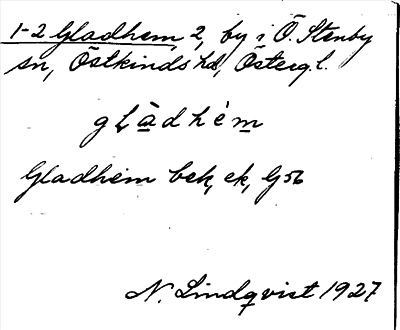 1-2 Gladhem, 2, by i Ö. Stenby
sn, Östkinds hd, Österg. l.
gլàdhèm
Gladhem bek, ek, G56
N. Lindqvist 1927